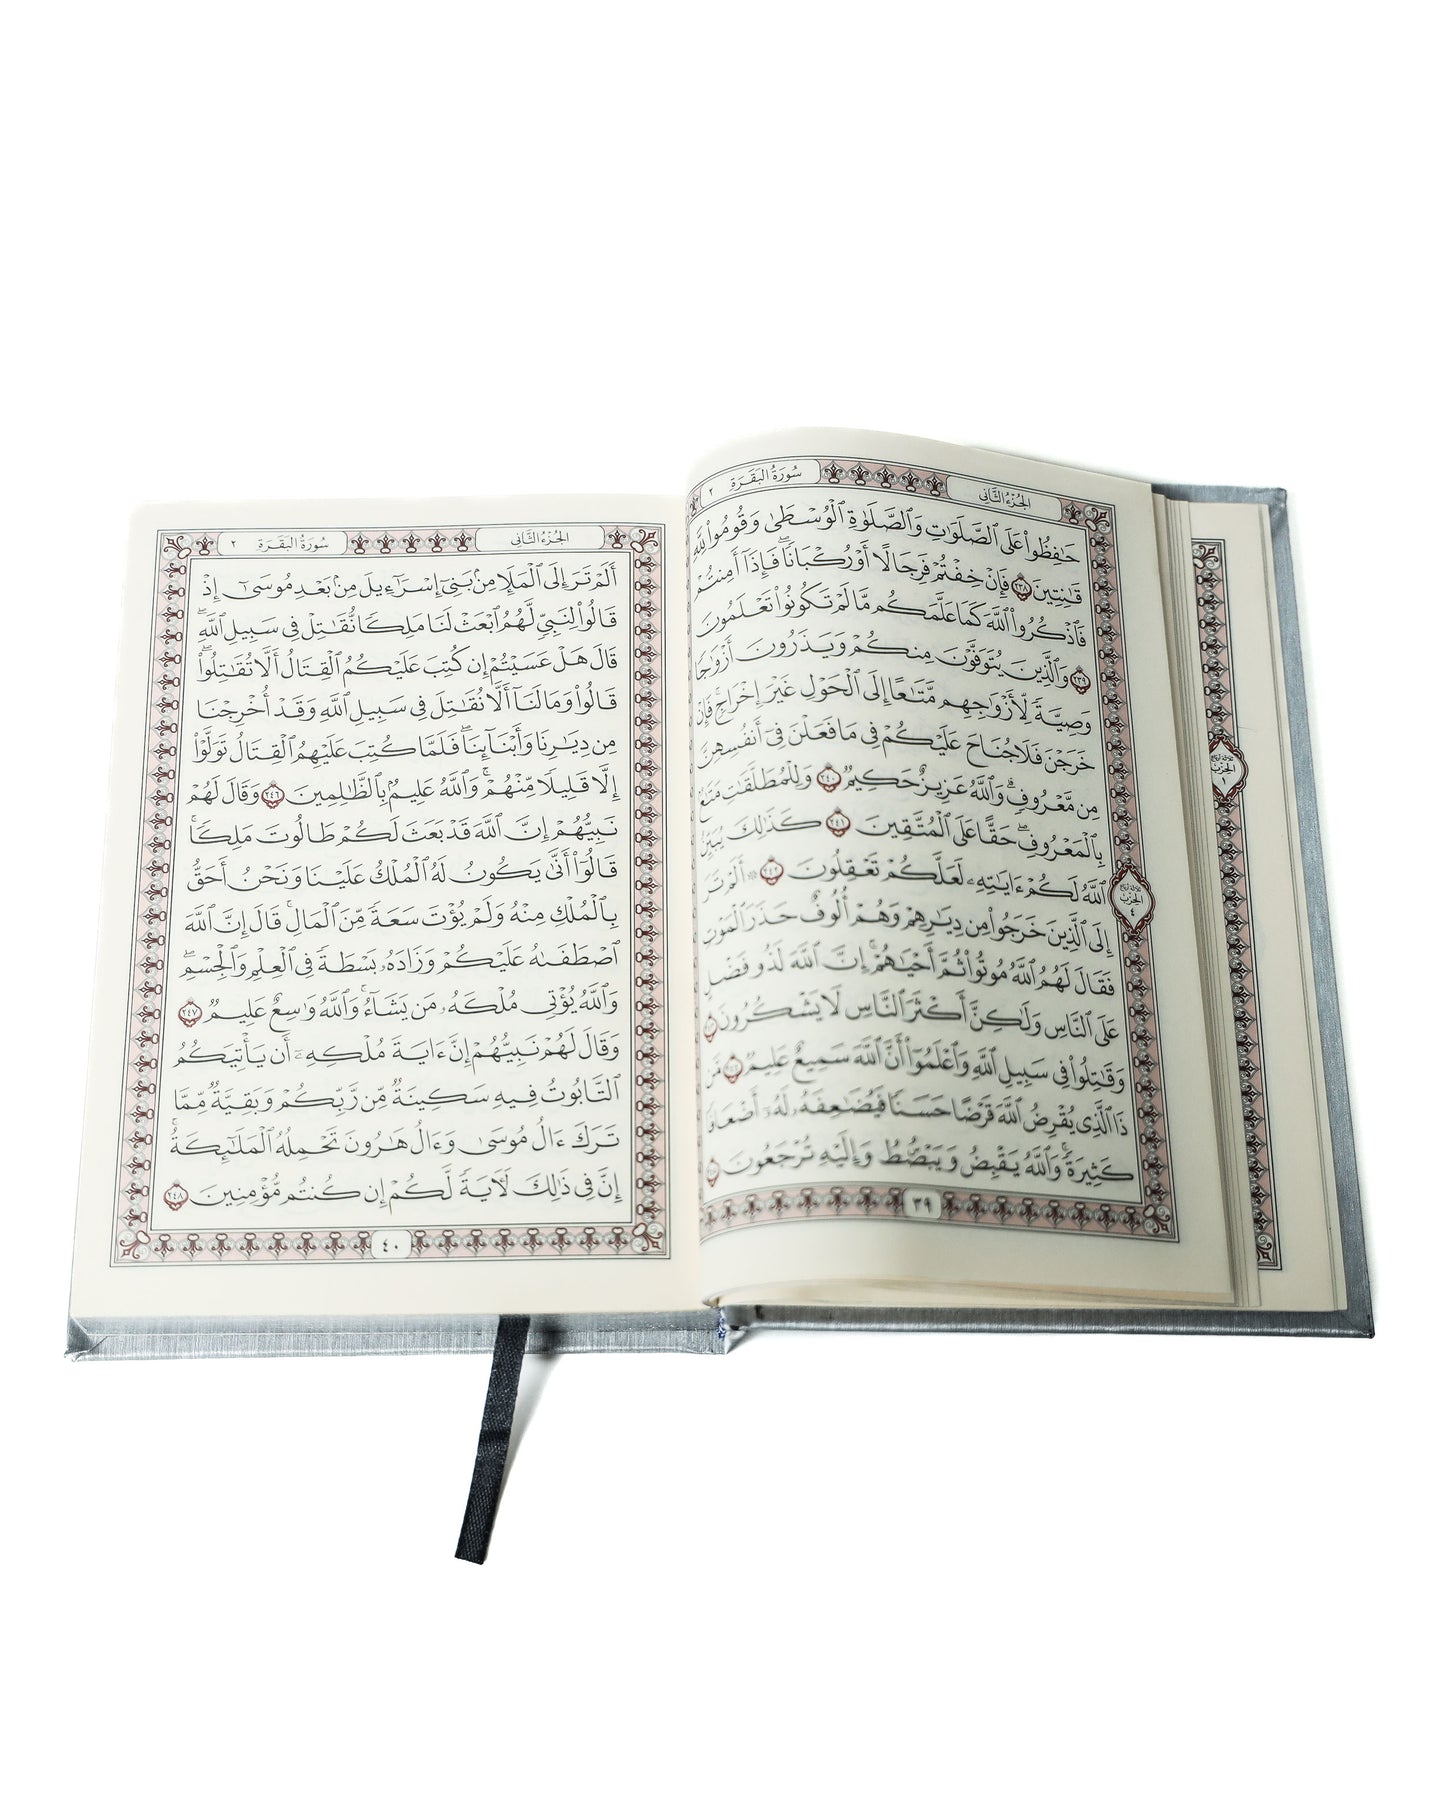 سُورَةُ البَقَرَةِ ٢
الجُزْءُ الثَّانِي
حَٰفِظُوا۟ عَلَى ٱلصَّلَوَٰتِ وَٱلصَّلَوٰةِ ٱلْوُسْطَىٰ وَقُومُوا۟ لِلَّهِ
قَٰنِتِينَ ٢٣٨ فَإِنْ خِفْتُمْ فَرِجَالًا أَوْ رُكْبَانًا ۖ فَإِذَآ أَمِنتُمْ
فَٱذْكُرُوا۟ ٱللَّهَ كَمَا عَلَّمَكُم مَّا لَمْ تَكُونُوا۟ تَعْلَمُونَ
٢٣٩ وَٱلَّذِينَ يُتَوَفَّوْنَ مِنكُمْ وَيَذَرُونَ أَزْوَٰجًا
وَصِيَّةً لِّأَزْوَٰجِهِم مَّتَٰعًا إِلَى ٱلْحَوْلِ غَيْرَ إِخْرَاجٍ ۚ فَإِنْ
خَرَجْنَ فَلَا جُنَاحَ عَلَيْكُمْ فِى مَا فَعَلْنَ فِىٓ أَنفُسِهِنَّ
مِن مَّعْرُوفٍ ۗ وَٱللَّهُ عَزِيزٌ حَكِيمٌ ٢٤٠ وَلِلْمُطَلَّقَٰتِ مَتَٰعٌۢ
بِٱلْمَعْرُوفِ ۖ حَقًّا عَلَى ٱلْمُتَّقِينَ ٢٤١ كَذَٰلِكَ يُبَيِّنُ
ٱللَّهُ لَكُمْ ءَايَٰتِهِۦ لَعَلَّكُمْ تَعْقِلُونَ ٢٤٢ ۞ أَلَمْ تَرَ
إِلَى ٱلَّذِينَ خَرَجُوا۟ مِن دِيَٰرِهِمْ وَهُمْ أُلُوفٌ حَذَرَ ٱلْمَوْتِ
فَقَالَ لَهُمُ ٱللَّهُ مُوتُوا۟ ثُمَّ أَحْيَٰهُمْ ۚ إِنَّ ٱللَّهَ لَذُو فَضْلٍ
عَلَى ٱلنَّاسِ وَلَٰكِنَّ أَكْثَرَ ٱلنَّاسِ لَا يَشْكُرُونَ
وَقَٰتِلُوا۟ فِى سَبِيلِ ٱللَّهِ وَٱعْلَمُوٓا۟ أَنَّ ٱللَّهَ سَمِيعٌ عَلِيمٌ ٢٤٤ مَّن
ذَا ٱلَّذِى يُقْرِضُ ٱللَّهَ قَرْضًا حَسَنًا فَيُضَٰعِفَهُۥ لَهُۥٓ أَضْعَافًا
كَثِيرَةً ۚ وَٱللَّهُ يَقْبِضُ وَيَبْصُۜطُ وَإِلَيْهِ تُرْجَعُونَ
٣٩
ثلاثة أرباع
الحزب
٤
ثلاثة أرباع
الحزب
١
سُورَةُ البَقَرَةِ ٢
الجُزْءُ الثَّانِي
أَلَمْ تَرَ إِلَى ٱلْمَلَإِ مِنۢ بَنِىٓ إِسْرَٰٓءِيلَ مِنۢ بَعْدِ مُوسَىٰٓ إِذْ
قَالُوا۟ لِنَبِىٍّ لَّهُمُ ٱبْعَثْ لَنَا مَلِكًا نُّقَٰتِلْ فِى سَبِيلِ ٱللَّهِ ۖ
قَالَ هَلْ عَسَيْتُمْ إِن كُتِبَ عَلَيْكُمُ ٱلْقِتَالُ أَلَّا تُقَٰتِلُوا۟ ۖ
قَالُوا۟ وَمَا لَنَآ أَلَّا نُقَٰتِلَ فِى سَبِيلِ ٱللَّهِ وَقَدْ أُخْرِجْنَا
مِن دِيَٰرِنَا وَأَبْنَآئِنَا ۖ فَلَمَّا كُتِبَ عَلَيْهِمُ ٱلْقِتَالُ تَوَلَّوْا۟
إِلَّا قَلِيلًا مِّنْهُمْ ۗ وَٱللَّهُ عَلِيمٌۢ بِٱلظَّٰلِمِينَ ٢٤٦ وَقَالَ لَهُمْ
نَبِيُّهُمْ إِنَّ ٱللَّهَ قَدْ بَعَثَ لَكُمْ طَالُوتَ مَلِكًا ۚ
قَالُوٓا۟ أَنَّىٰ يَكُونُ لَهُ ٱلْمُلْكُ عَلَيْنَا وَنَحْنُ أَحَقُّ
بِٱلْمُلْكِ مِنْهُ وَلَمْ يُؤْتَ سَعَةً مِّنَ ٱلْمَالِ ۚ قَالَ إِنَّ ٱللَّهَ
ٱصْطَفَىٰهُ عَلَيْكُمْ وَزَادَهُۥ بَسْطَةً فِى ٱلْعِلْمِ وَٱلْجِسْمِ ۖ
وَٱللَّهُ يُؤْتِى مُلْكَهُۥ مَن يَشَآءُ ۚ وَٱللَّهُ وَٰسِعٌ عَلِيمٌ ٢٤٧
وَقَالَ لَهُمْ نَبِيُّهُمْ إِنَّ ءَايَةَ مُلْكِهِۦٓ أَن يَأْتِيَكُمُ
ٱلتَّابُوتُ فِيهِ سَكِينَةٌ مِّن رَّبِّكُمْ وَبَقِيَّةٌ مِّمَّا
تَرَكَ ءَالُ مُوسَىٰ وَءَالُ هَٰرُونَ تَحْمِلُهُ ٱلْمَلَٰٓئِكَةُ ۚ
إِنَّ فِى ذَٰلِكَ لَءَايَةً لَّكُمْ إِن كُنتُم مُّؤْمِنِينَ ٢٤٨
٤٠